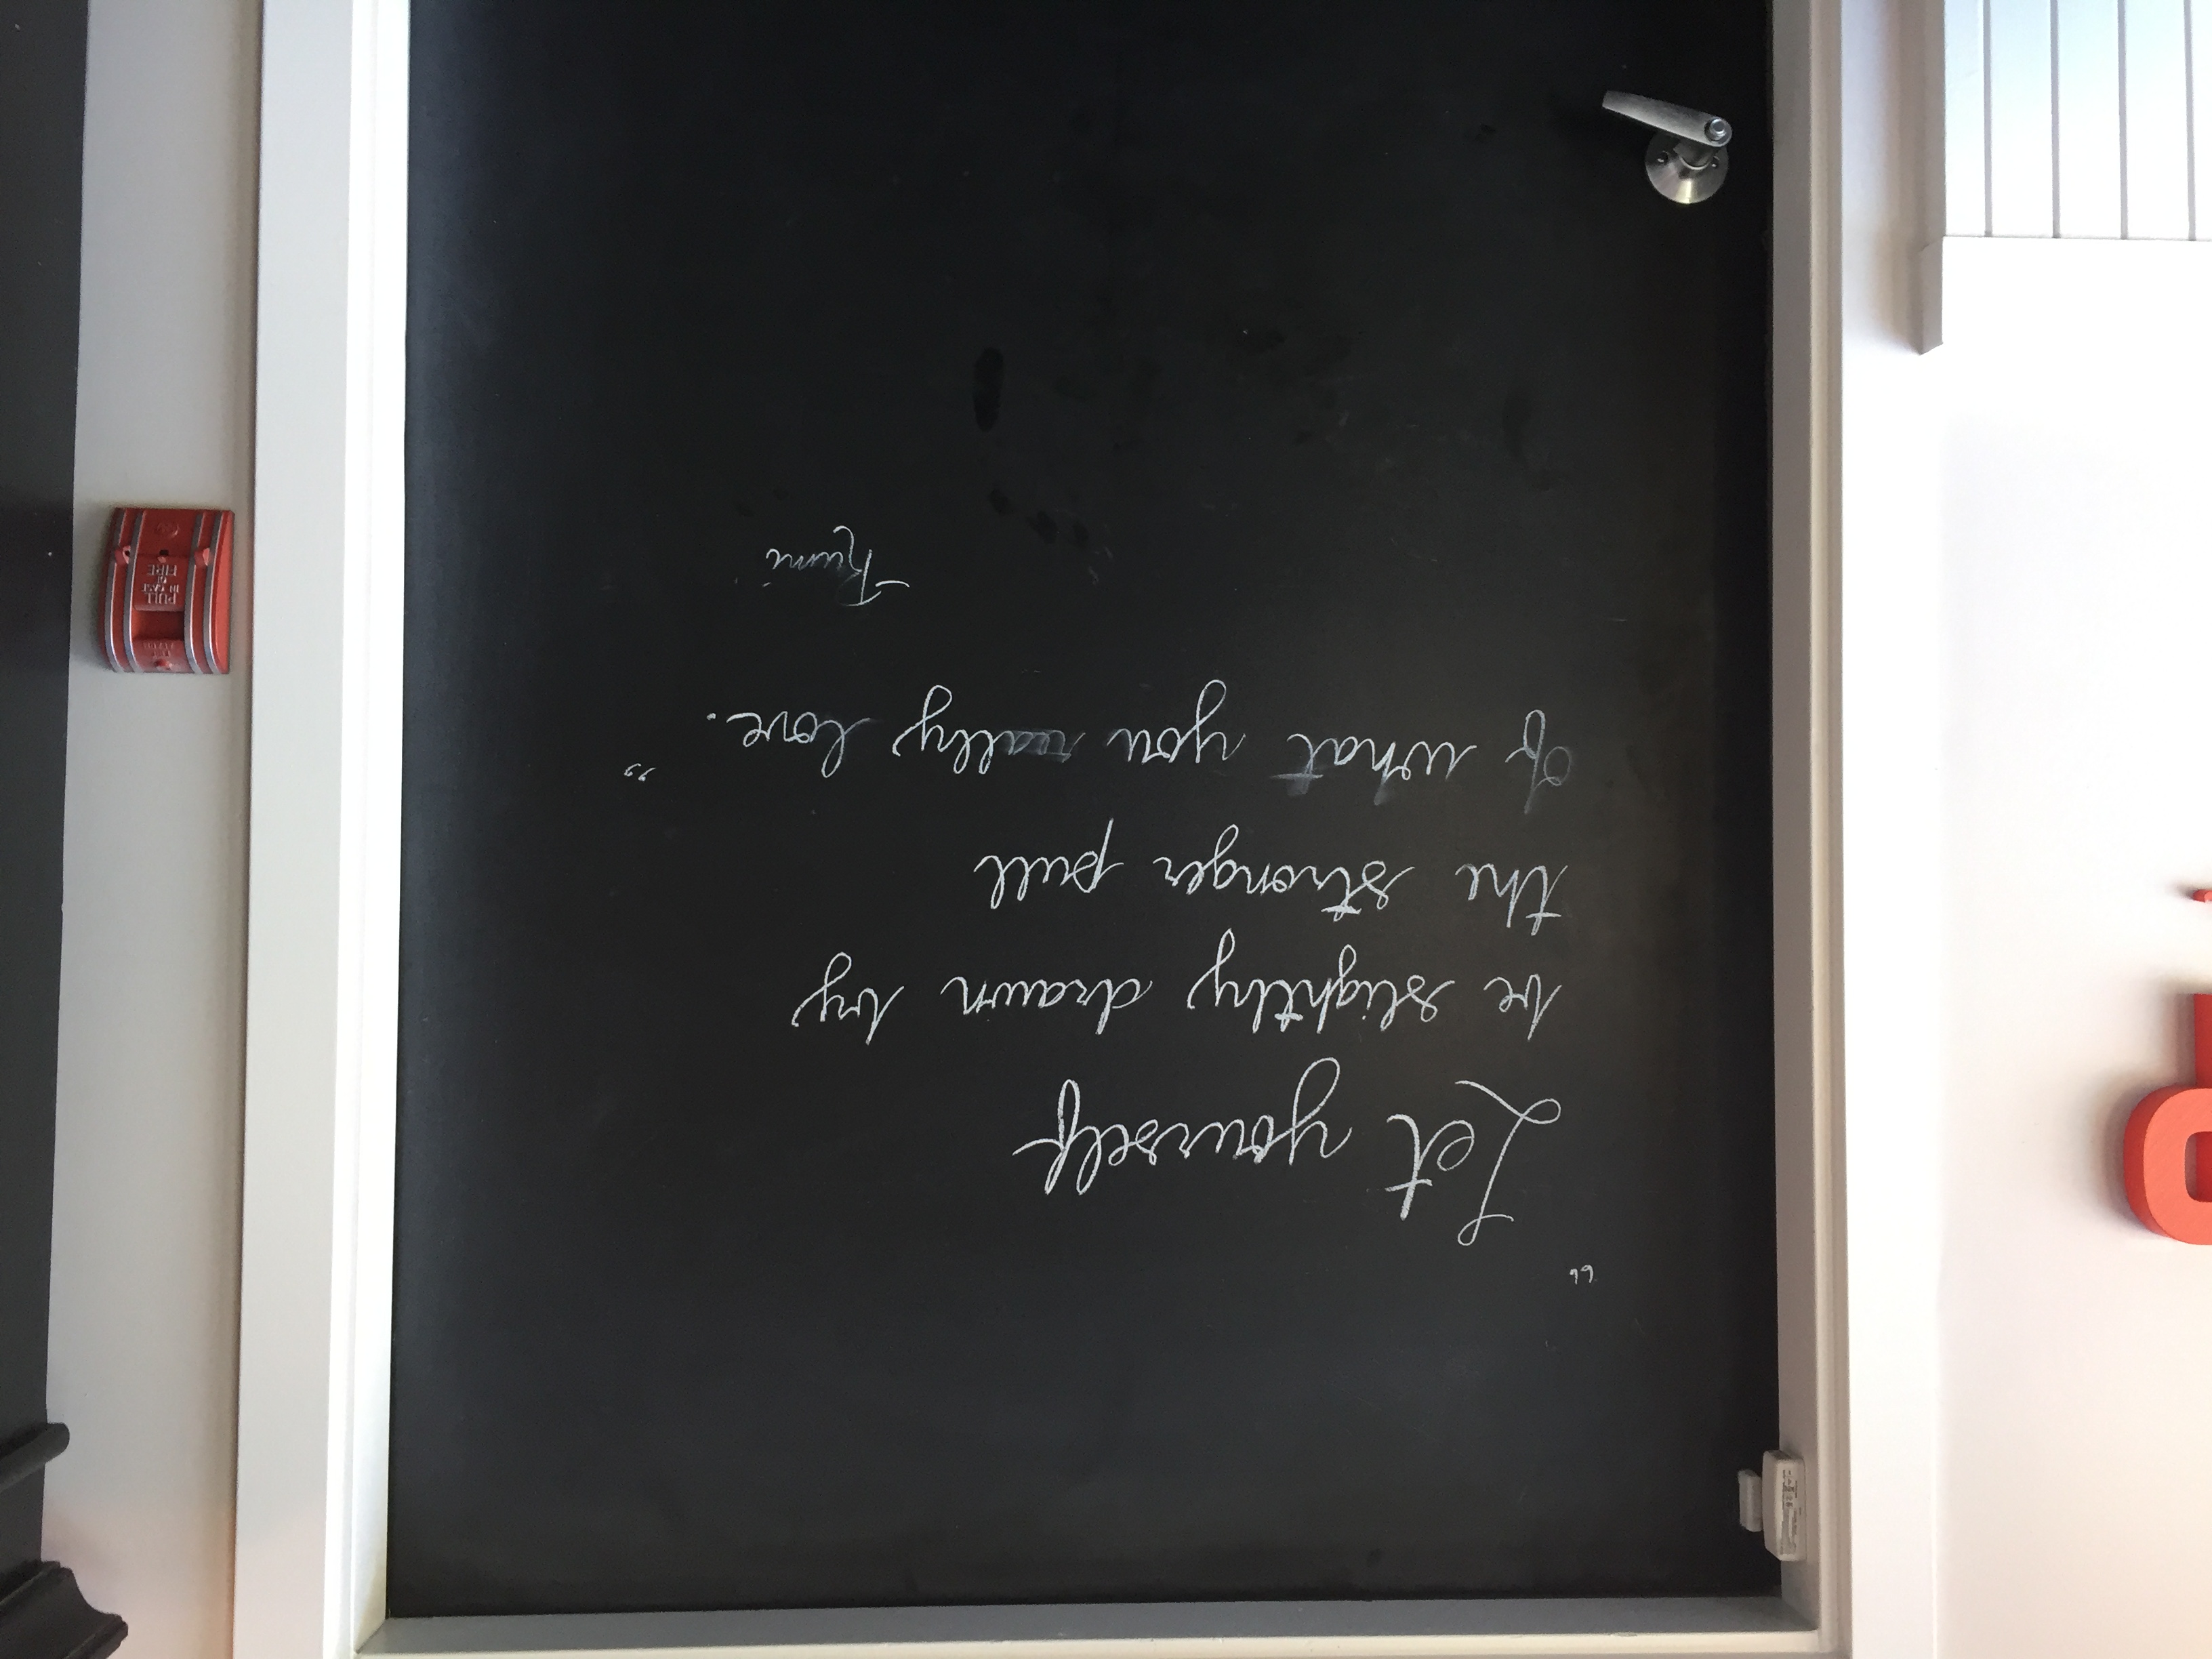 “
Let yourself
be slightly drawn by
the stronger pull
of what you really love.
”
Rumi
PULL
IN CASE
OF
FIRE